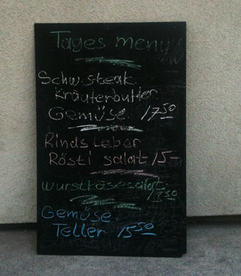 Tages menu
Schw. steak
Kräuterbutter
Gemüse 17 50
Rinds Leber
Rösti salat 15.-
wurstkäsesalat
17 50
Gemüse
Teller 15 50